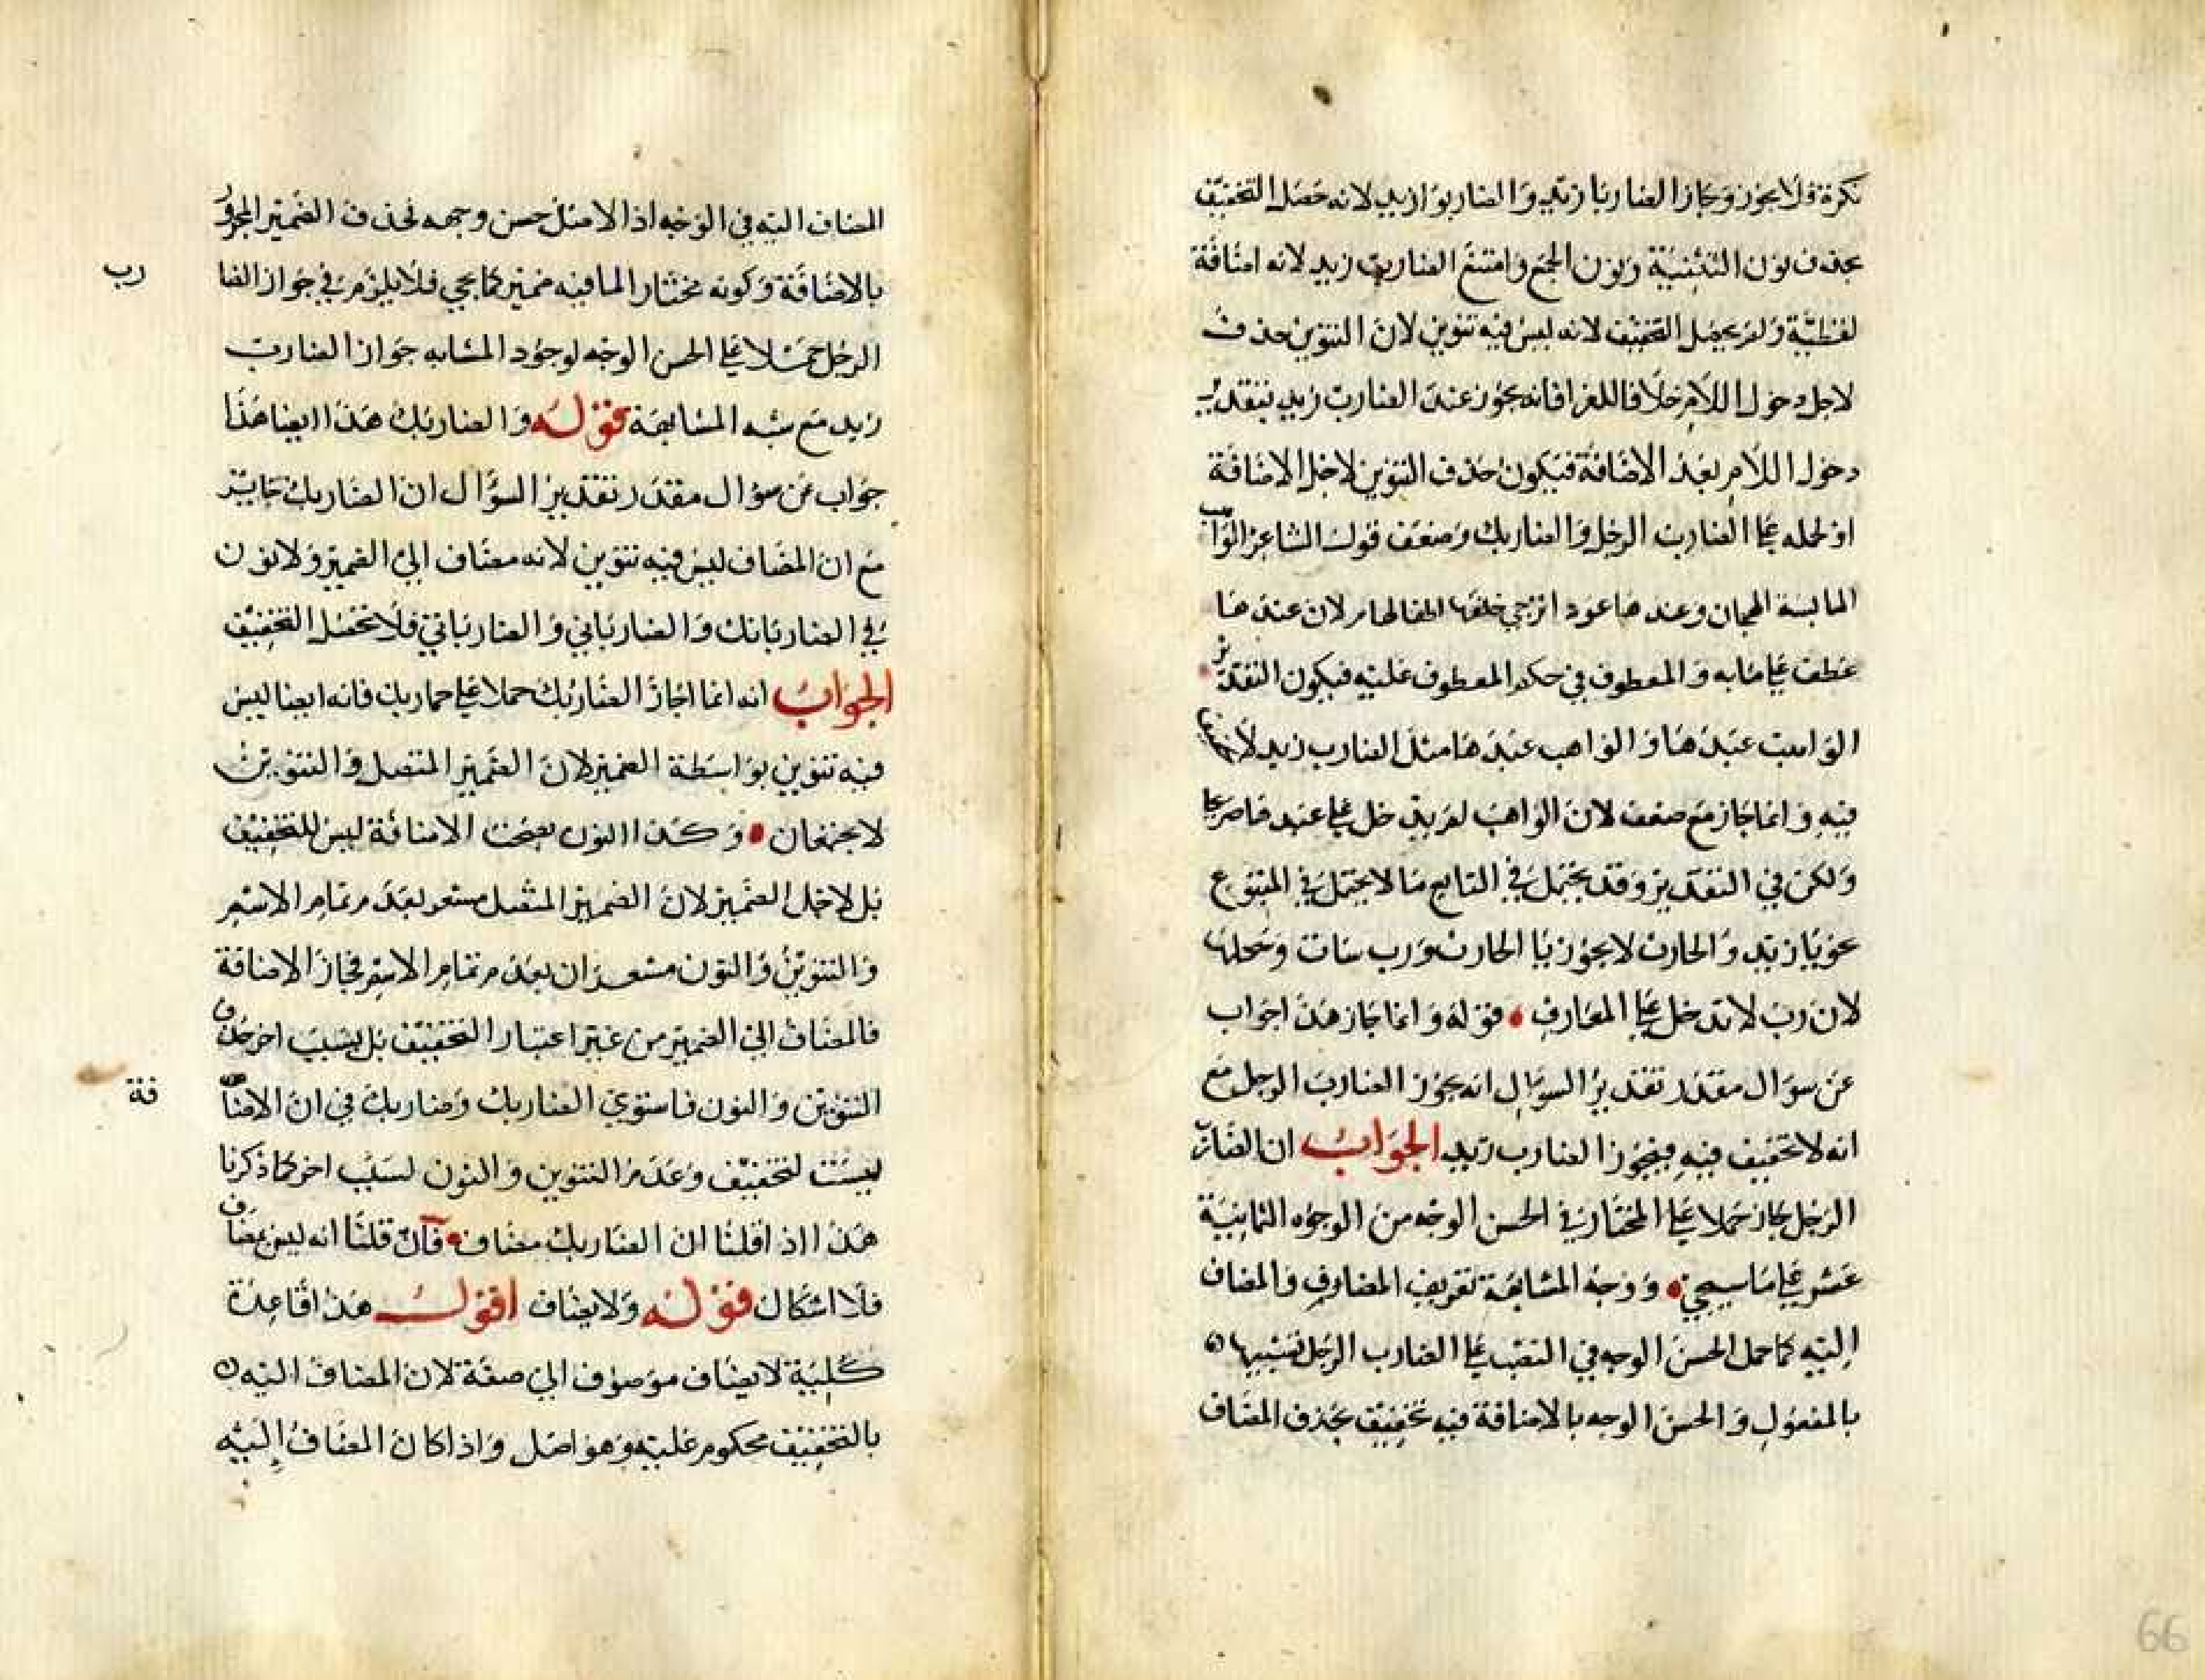 نكرة فلا يجوز وجاز الضاربا زيد والضاربوا زيد لانه حصل التخفيف
بحذف نون التثنية ونون الجمع وامتنع الضارب زيد لانه اضافة
لفظية ولم يحصل التخفيف لانه ليس فيه تنوين لان التنوين حذف
لاجل دخول اللام خلافا للفرا فانه يجوز عنده الضارب زيد بتقدير
دخول اللام بعد الاضافة فيكون حذف التنوين لاجل الاضافة
او لحمله على الضارب الرجل والضاربك وضعف قول الشاعر الواهب
الماية الهجان وعبدها عودا تزجي خلفها اطفالها لان عبدها
عطف على مايه والمعطوف في حكم المعطوف عليه فيكون التقدير
الواهب عبدها والواهب عبدها مثل الضارب زيد لا
فيه وانما جاز مع ضعف لان الواهب لم يدخل على عبد صريحا
ولكن في التقدير وقد يحتمل في التابع ما لا يحتمل في المتبوع
نحو يا زيد والحارث لا يجوز يا الحارث ورب شاة وسخلتها
لان رب لا تدخل على المعارف • قوله وانما جاز هذا جواب
عن سوال مقدر تقدير السوال انه يجوز الضارب الرجل مع
انه لا تخفيف فيه فيجوز الضارب زيد الجواب ان الضارب
الرجل جاز حملا على المختار في الحسن الوجه من الوجوه الثمانية
عشر على ما سيجي • ووجه المشابهة تعريف المضاف والمضاف
اليه كما حمل الحسن الوجه في النصب على الضارب الرجل تشبيها
بالمفعول والحسن الوجه بالاضافة فيه تخفيف بحذف المضاف
المضاف اليه في الوجه اذ الاصل حسن وجهه فحذف الضمير المجرور
بالاضافة وكونه مختارا لما فيه ضمير كما يجي فلا يلزم في جواز الضا
رب
الرجل حملا على الحسن الوجه لوجود المشابه جواز الضارب
زيد مع شبه المشابهة قوله والضاربك هذا ايضا هذا
جواب عن سوال مقدر تقدير السؤال ان الضاربك جايز
مع ان المضاف ليس فيه تنوين لانه مضاف الى الضمير ولا نون
في الضاربانك والضارباني والضارباتي فلا تحصل التخفيف
الجواب انه انما اجاز الضاربك حملا على ضاربك فانه ايضا ليس
فيه تنوين بواسطة الضمير لان الضمير المتصل والتنوين
لا يجتمعان • وكذا النون فصحت الاضافة ليس للتخفيف
بل لاجل الضمير لان الضمير المتصل مشعر بعدم تمام الاسم
والتنوين والنون مشعران بعدم تمام الاسم فجاز الاضافة
فالمضاف الى الضمير من غير اعتبار التخفيف بل بسبب اخر حذف
التنوين والنون فاستوي الضاربك وضاربك في ان الاضا
فة
ليست لتخفيف وعدم التنوين والنون لسبب اخر كما ذكرنا
هذا اذا قلنا ان الضاربك مضاف • فان قلنا انه ليس بمضاف
فلا اشكال قوله ولا يضاف اقول هذا قاعدة
كلية لا يضاف موصوف الى صفة لان المضاف اليه
بالتخفيف محكوم عليه وهو اصل واذا كان المضاف اليه
66